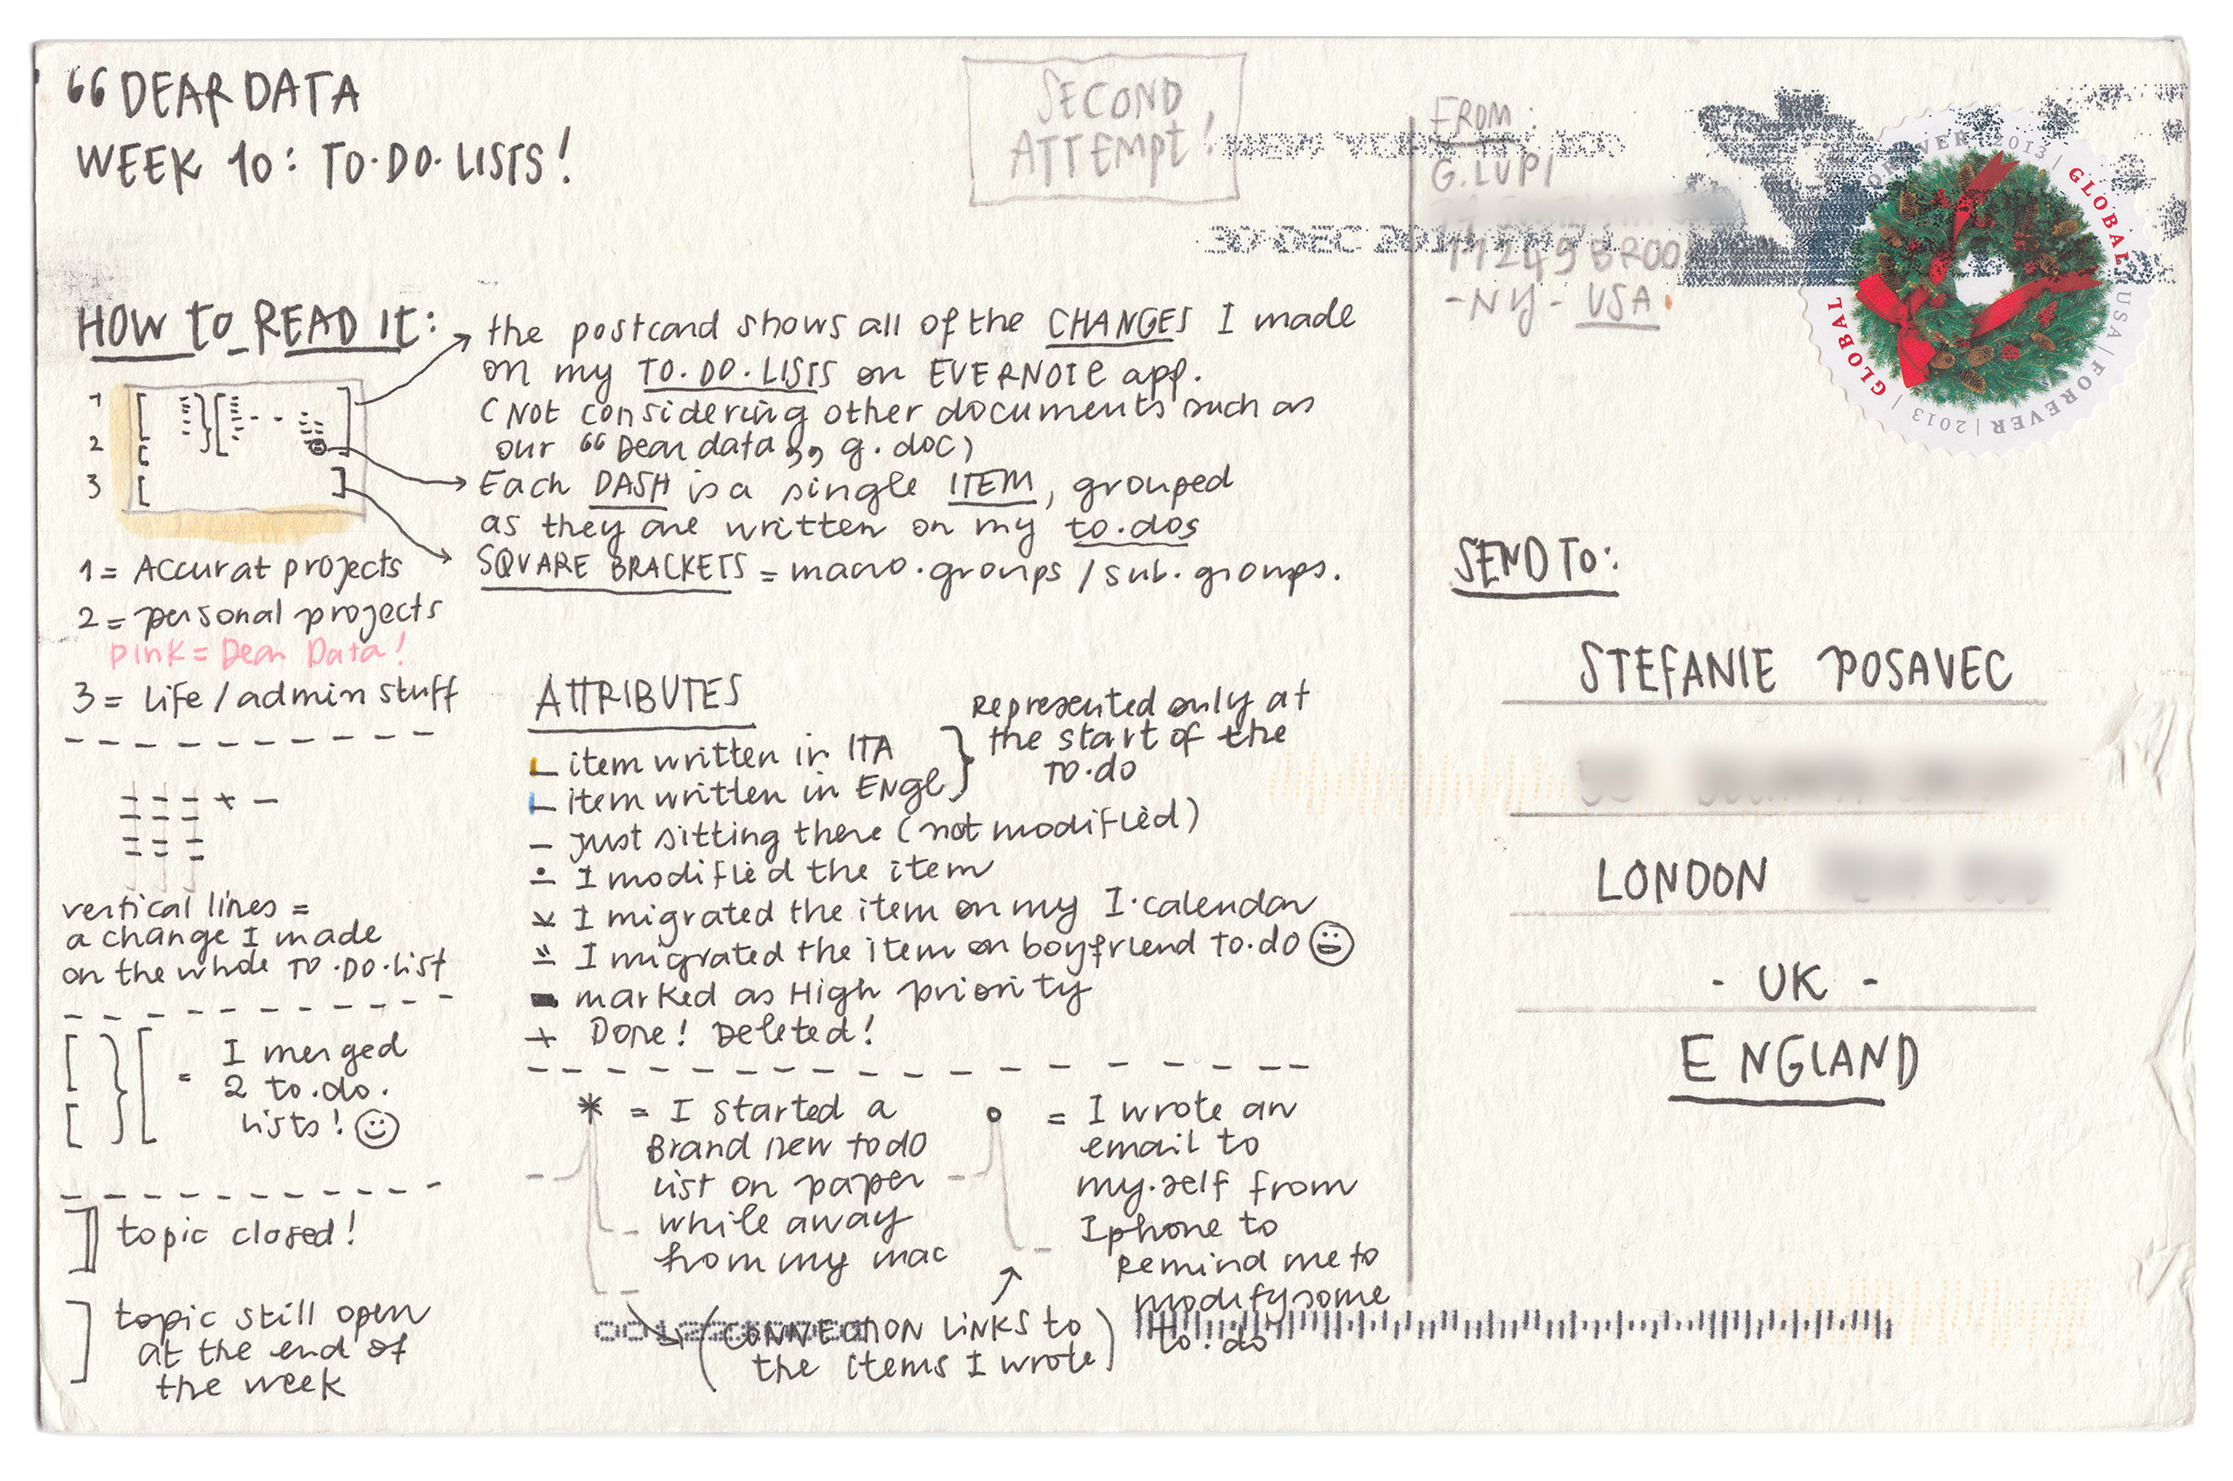 “DEAR DATA
WEEK 10: TO·DO·LISTS!
SECOND
ATTEMPT!
NEW YORK NY 100
30 DEC 201
FROM:
G. LUPI
11249 BROO
-NY- USA
FOREVER | 2013 | GLOBAL | USA | FOREVER | 2013 | GLOBAL
HOW to READ It:
1
2
3
the postcard shows all of the CHANGES I made
on my TO·DO·LISTS on EVERNOTE app.
(NOT considering other documents such as
our “Dear data„ g.doc)
Each DASH is a single ITEM, grouped
as they are written on my to·dos
SQUARE BRACKETS = macro·groups / sub·groups.
1 = Accurat projects
2 = personal projects
pink = Dear Data!
3 = life / admin stuff
vertical lines =
a change I made
on the whole TO·DO·list
= I merged
2 to·do·
lists!
topic closed!
topic still open
at the end of
the week
ATTRIBUTES
item written in ITA
item written in ENGL
Represented only at
the start of the
TO·DO
just sitting there (not modified)
I modified the item
I migrated the item on my I·calendar
I migrated the item on boyfriend to·do
marked as High priority
Done! Deleted!
* = I started a
Brand new to do
list on paper
while away
from my mac
= I wrote an
email to
my·self from
Iphone to
remind me to
modify some
to·do
(CONNECTION LINKS to
the items I wrote)
SEND TO:
STEFANIE POSAVEC
LONDON
- UK -
ENGLAND